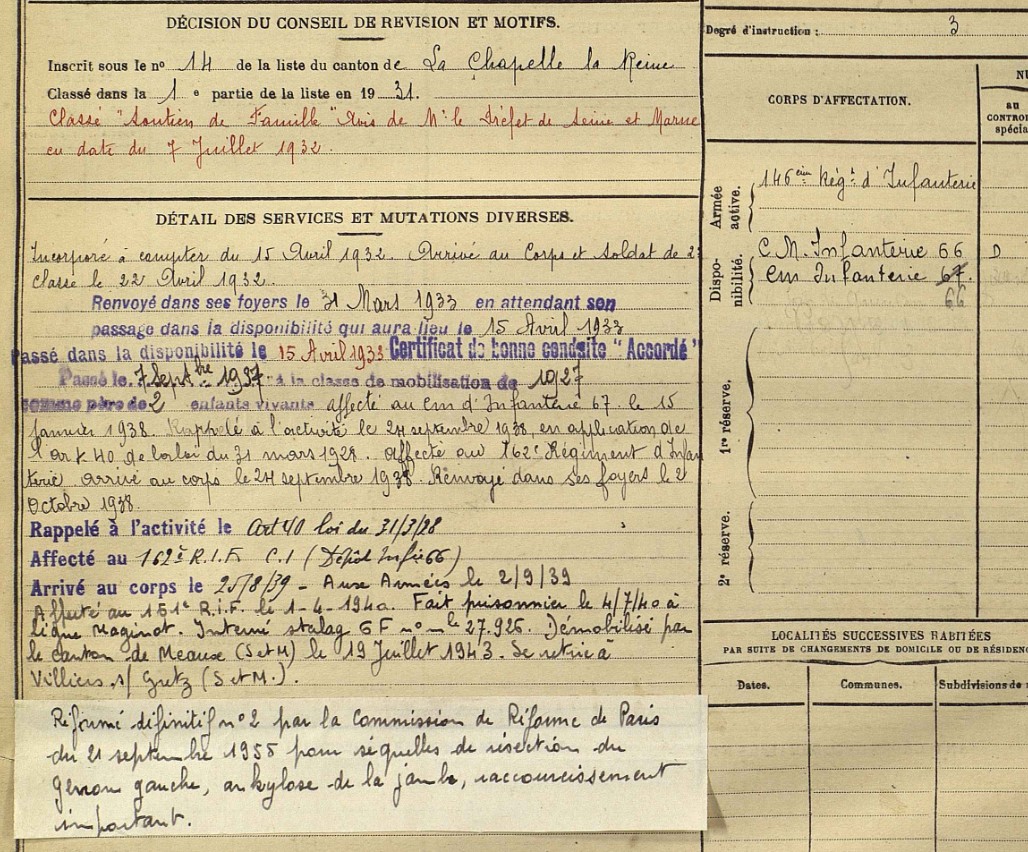 DÉCISION DU CONSEIL DE REVISION ET MOTIFS.
Inscrit sous le nº 14 de la liste du canton de La Chapelle la Reine
Classé dans la 1 e partie de la liste en 19 31.
Classé "Soutien de Famille" Avis de Mr le Préfet de Seine et Marne
en date du 7 Juillet 1932.
DÉTAIL DES SERVICES ET MUTATIONS DIVERSES.
Incorporé à compter du 15 Avril 1932. Arrivé au Corps et soldat de 2
classe le 22 Avril 1932.
Renvoyé dans ses foyers le 31 Mars 1933 en attendant son
passage dans la disponibilité qui aura lieu le 15 Avril 1933
Passé dans la disponibilité le 15 Avril 1933 Certificat de bonne conduite "Accordé"
Passé le 7 Septbre 1937 à la classe de mobilisation de 1927
comme père de 2 enfants vivants affecté au Cm d'Infanterie 67 le 15
Janvier 1938. Rappelé à l'activité le 24 septembre 1938, en application de
l'art 40 de la loi du 31 mars 1928. affecté au 162e Régiment d'Infan
terie arrivé au corps le 24 septembre 1938. Renvoyé dans ses foyers le 2
Octobre 1938.
Rappelé à l'activité le Art 40 loi du 31/3/28
Affecté au 162e R.I.F. C.I (Dépôt Infie 66)
Arrivé au corps le 25/8/39 - Aux Armées le 2/9/39
Affecté au 151e R.I.F. le 1-4-1940. Fait prisonnier le 4/7/40 à
ligne Maginot. Interné stalag 6 F nº mle 27.926. Démobilisé par
le canton de Meaux (S et M) le 19 Juillet 1943. Se retire à
Villiers s/ Gretz (S et M.).
Réformé définitif nº 2 par la Commission de Réforme de Paris
du 21 septembre 1955 pour séquelles de résection du
genou gauche, ankylose de la jambe, raccourcissement
important.
Degré d'instruction : 3
CORPS D'AFFECTATION.
NU
au
CONTROL
spécia
Armée active.
146ème Régt d'Infanterie
Disponibilité.
C M. Infanterie 66 D
Cm Infanterie 67.
66
1re réserve.
2e réserve.
LOCALITÉS SUCCESSIVES HABITÉES
PAR SUITE DE CHANGEMENTS DE DOMICILE OU DE RÉSIDENC
Dates. Communes. Subdivisions de